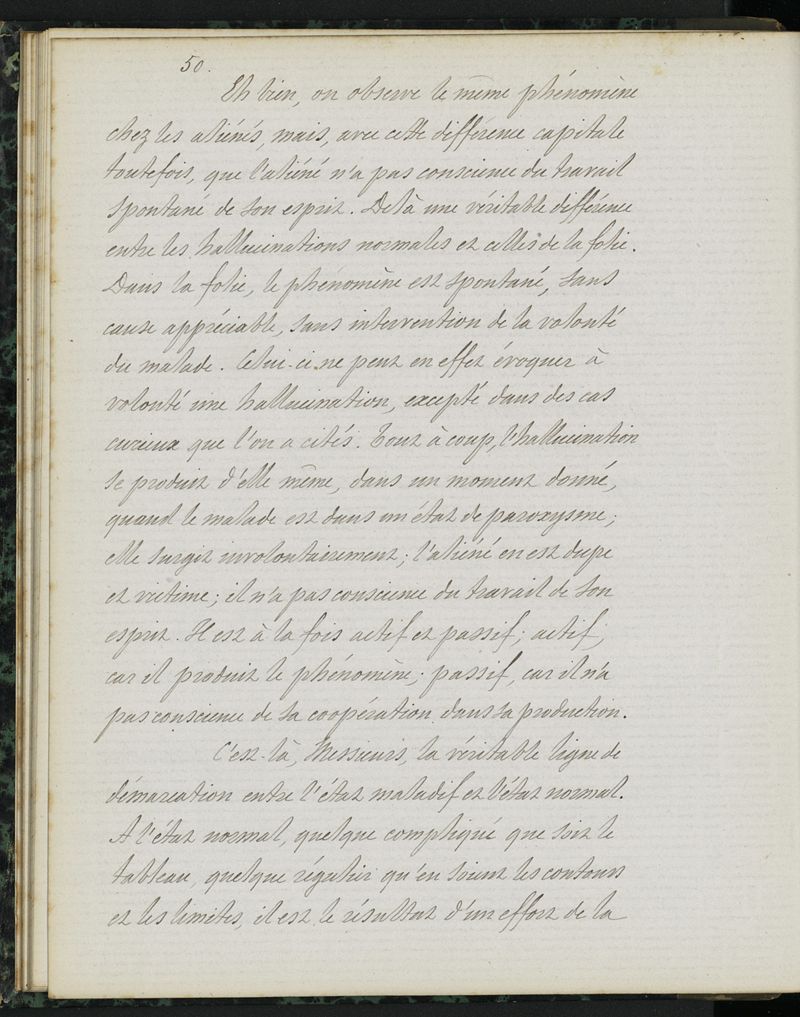 50.
Eh bien, on observe le même phénomène
chez les aliénés, mais, avec cette différence capitale
toutefois, que l'aliéné n'a pas conscience du travail
spontané de son esprit. De là une véritable différence
entre les hallucinations normales et celles de la folie.
Dans la folie, le phénomène est spontané, sans
cause appréciable, sans intervention de la volonté
du malade. Celui-ci ne peut en effet évoquer à
volonté une hallucination, excepté dans des cas
curieux que l'on a cités. Tout à coup, l'hallucination
se produit d'elle même, dans un moment donné,
quand le malade est dans un état de paroxysme;
elle surgit involontairement; l'aliéné en est dupe
et victime; il n'a pas conscience du travail de son
esprit. Il est à la fois actif et passif; actif,
car il produit le phénomène; passif, car il n'a
pas conscience de sa coopération dans sa production.
C'est là, Messieurs, la véritable ligne de
démarcation entre l'état maladif et l'état normal.
A l'état normal, quelque compliqué que soit le
tableau, quelque régulier qu'en soient les contours
et les limites, il est le résultat d'un effort de la